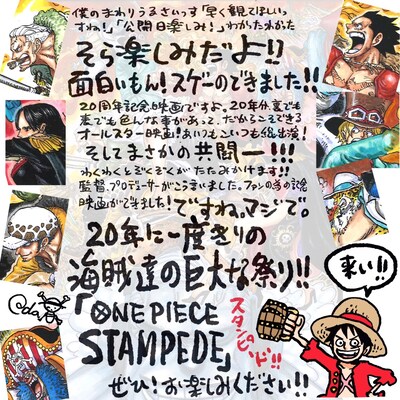 僕のまわりうるさいっす「早く観てほしいっ
すね!」「公開日楽しみ!」わかったわかった
そら楽しみだよ!!
面白いもん!スゲーのできました!!
20周年記念映画ですよ。20年休裏でも
表でも色んな事があって、だからこそできる
オールスター映画!あいつもこいつも総出演!
そしてまさかの共闘ー!!!
わくわくとぞくぞくがたたみかけます!!
監督、プロデューサーがこう言いました。ファンの為の
映画ができました!ですね。マジで。
20年に一度きりの
海賊達の巨大な祭り!!
「ONE PIECE
STAMPEDE」
スタンピード!!
ぜひ!お楽しみください!!
来い!!
Oda